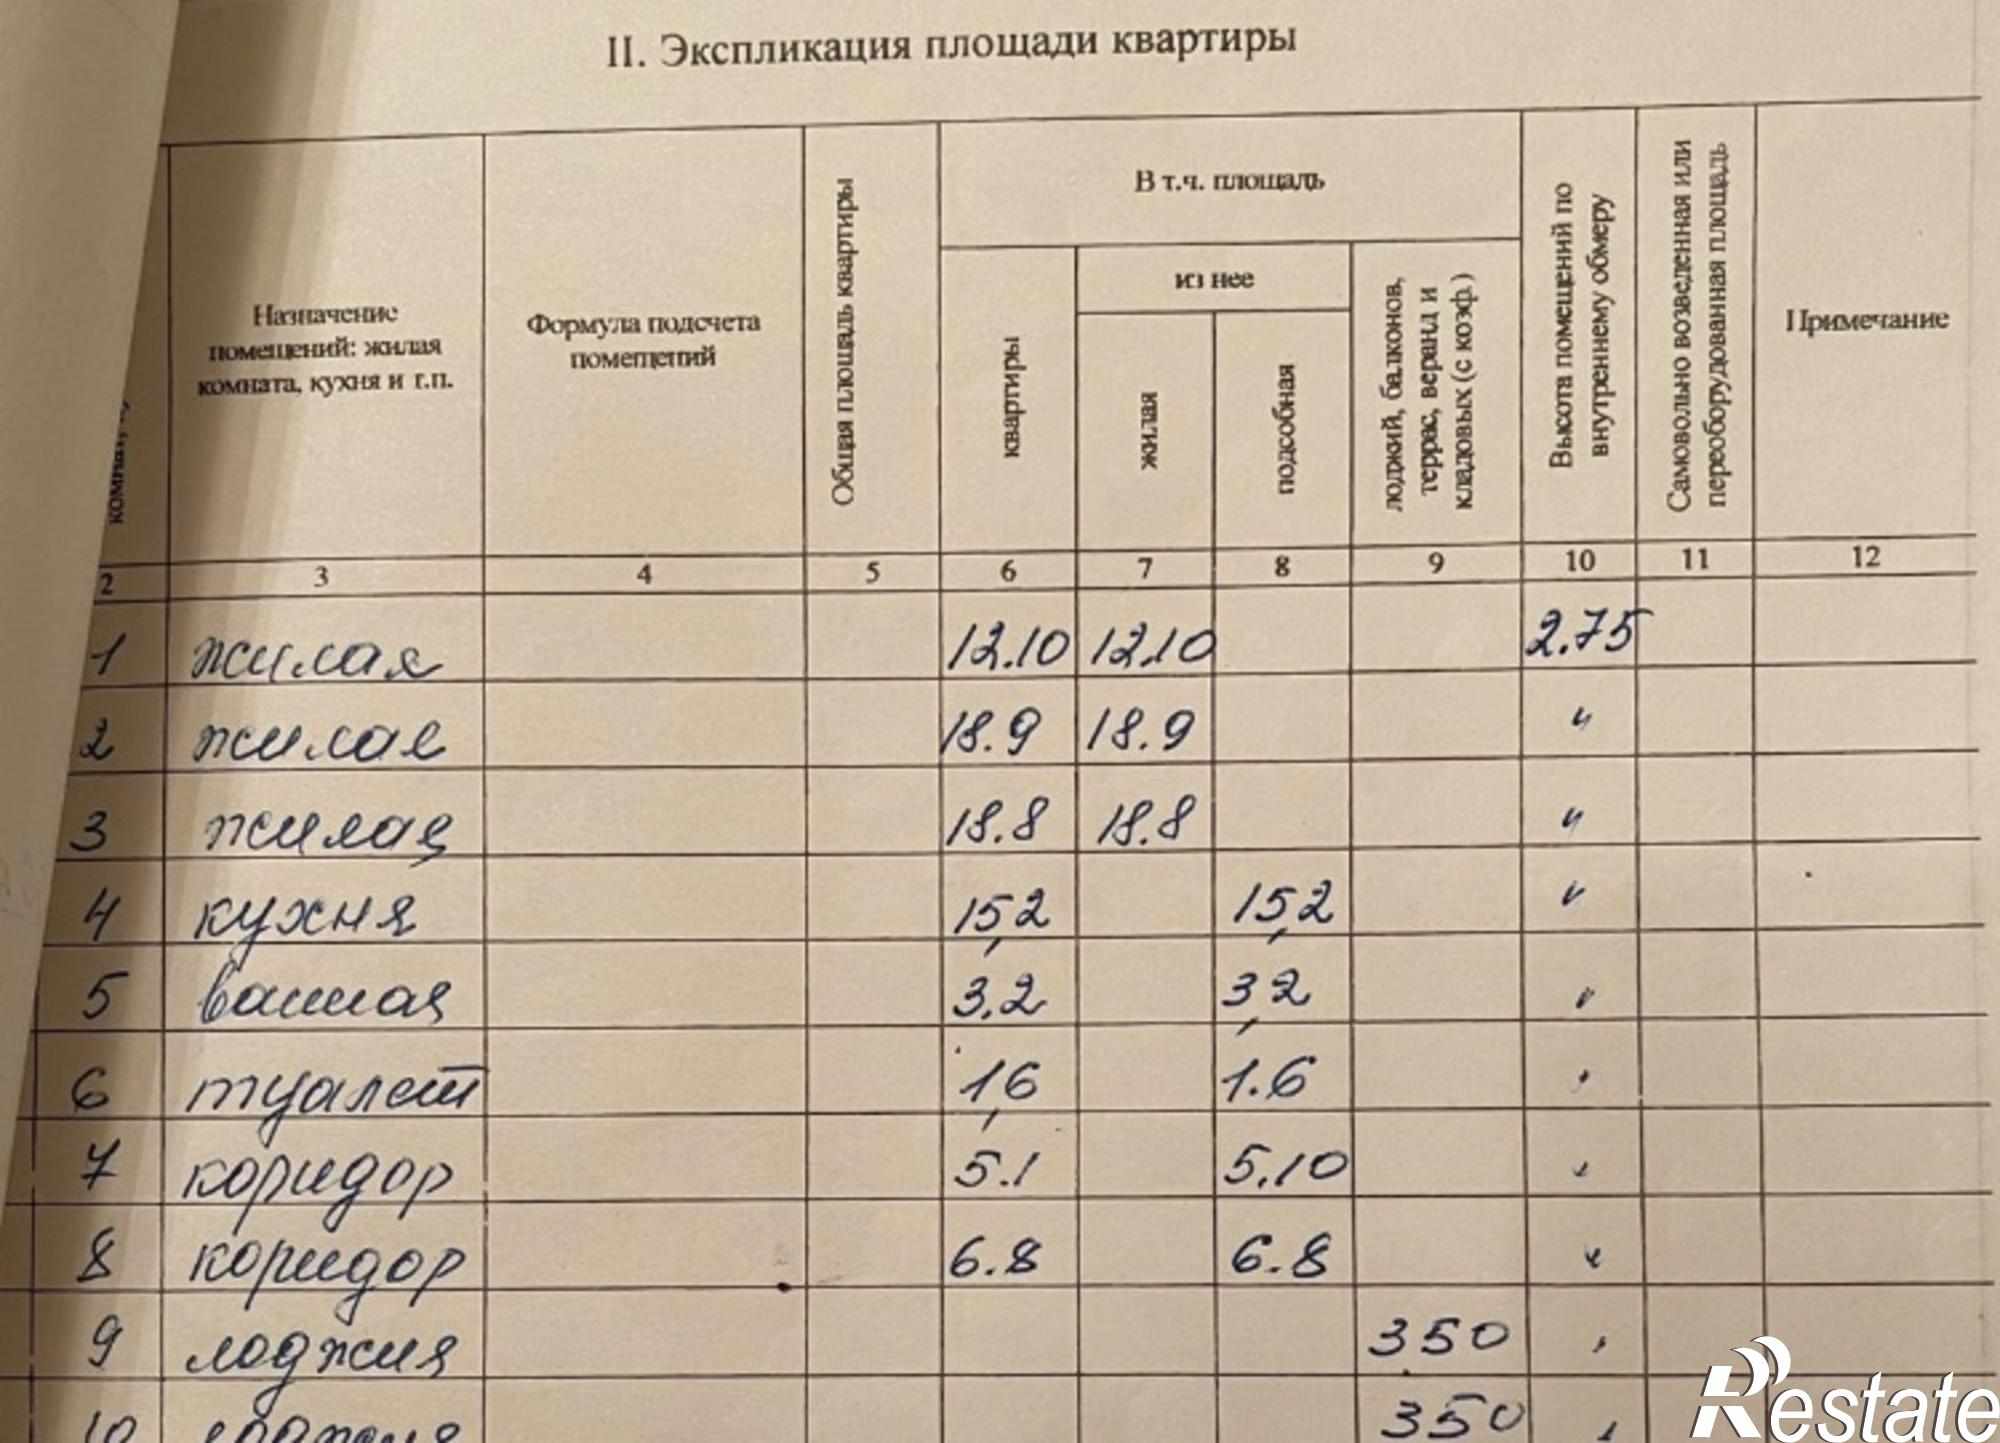 II. Экспликация площади квартиры
Назначение
помещений: жилая
комната, кухня и т.п.
Формула подсчета
помещений
Общая площадь квартиры
В т.ч. площадь
квартиры
из нее
жилая
подсобная
лоджий, балконов,
террас, веранд и
кладовых (с коэф.)
Высота помещений по
внутреннему обмеру
Самовольно возведенная или
переоборудованная площадь
Примечание
2 3 4 5 6 7 8 9 10 11 12
1 жилая 12.10 12.10 2.75
2 жилая 18.9 18.9 "
3 жилая 18.8 18.8 "
4 кухня 15,2 15,2 "
5 ванная 3,2 3,2 "
6 туалет 1,6 1.6 "
7 коридор 5.1 5.10 "
8 коридор 6.8 6.8 "
9 лоджия 3.50 "
10 лоджия 3.50 "
Restate